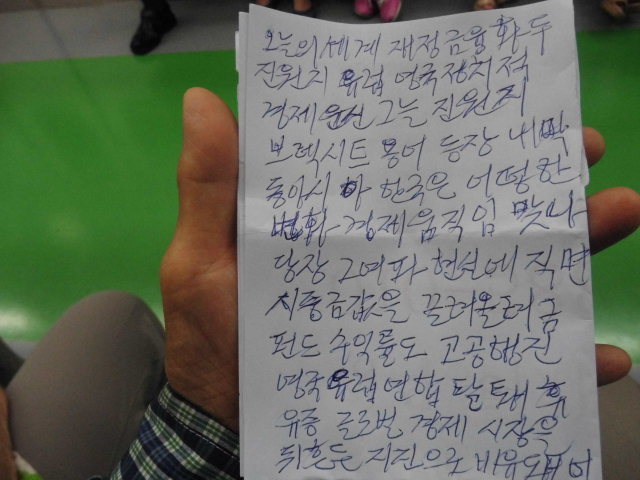 오늘의 세계 재정금융 화두
진원지 유럽 영국정치적
경제 운신 그는 진원지
브렉시트 용어 등장 내막
동아시아 한국은 어떻한
변화 경제움직임 맞나
당장 그여파 현실에 직면
시중금값을 끌려올려금
펀드 수익률도 고공행진
영국 유럽연합 탈퇴 후
유증 글로번 경제 시장은
뒤흔든 지진으로 비유되어